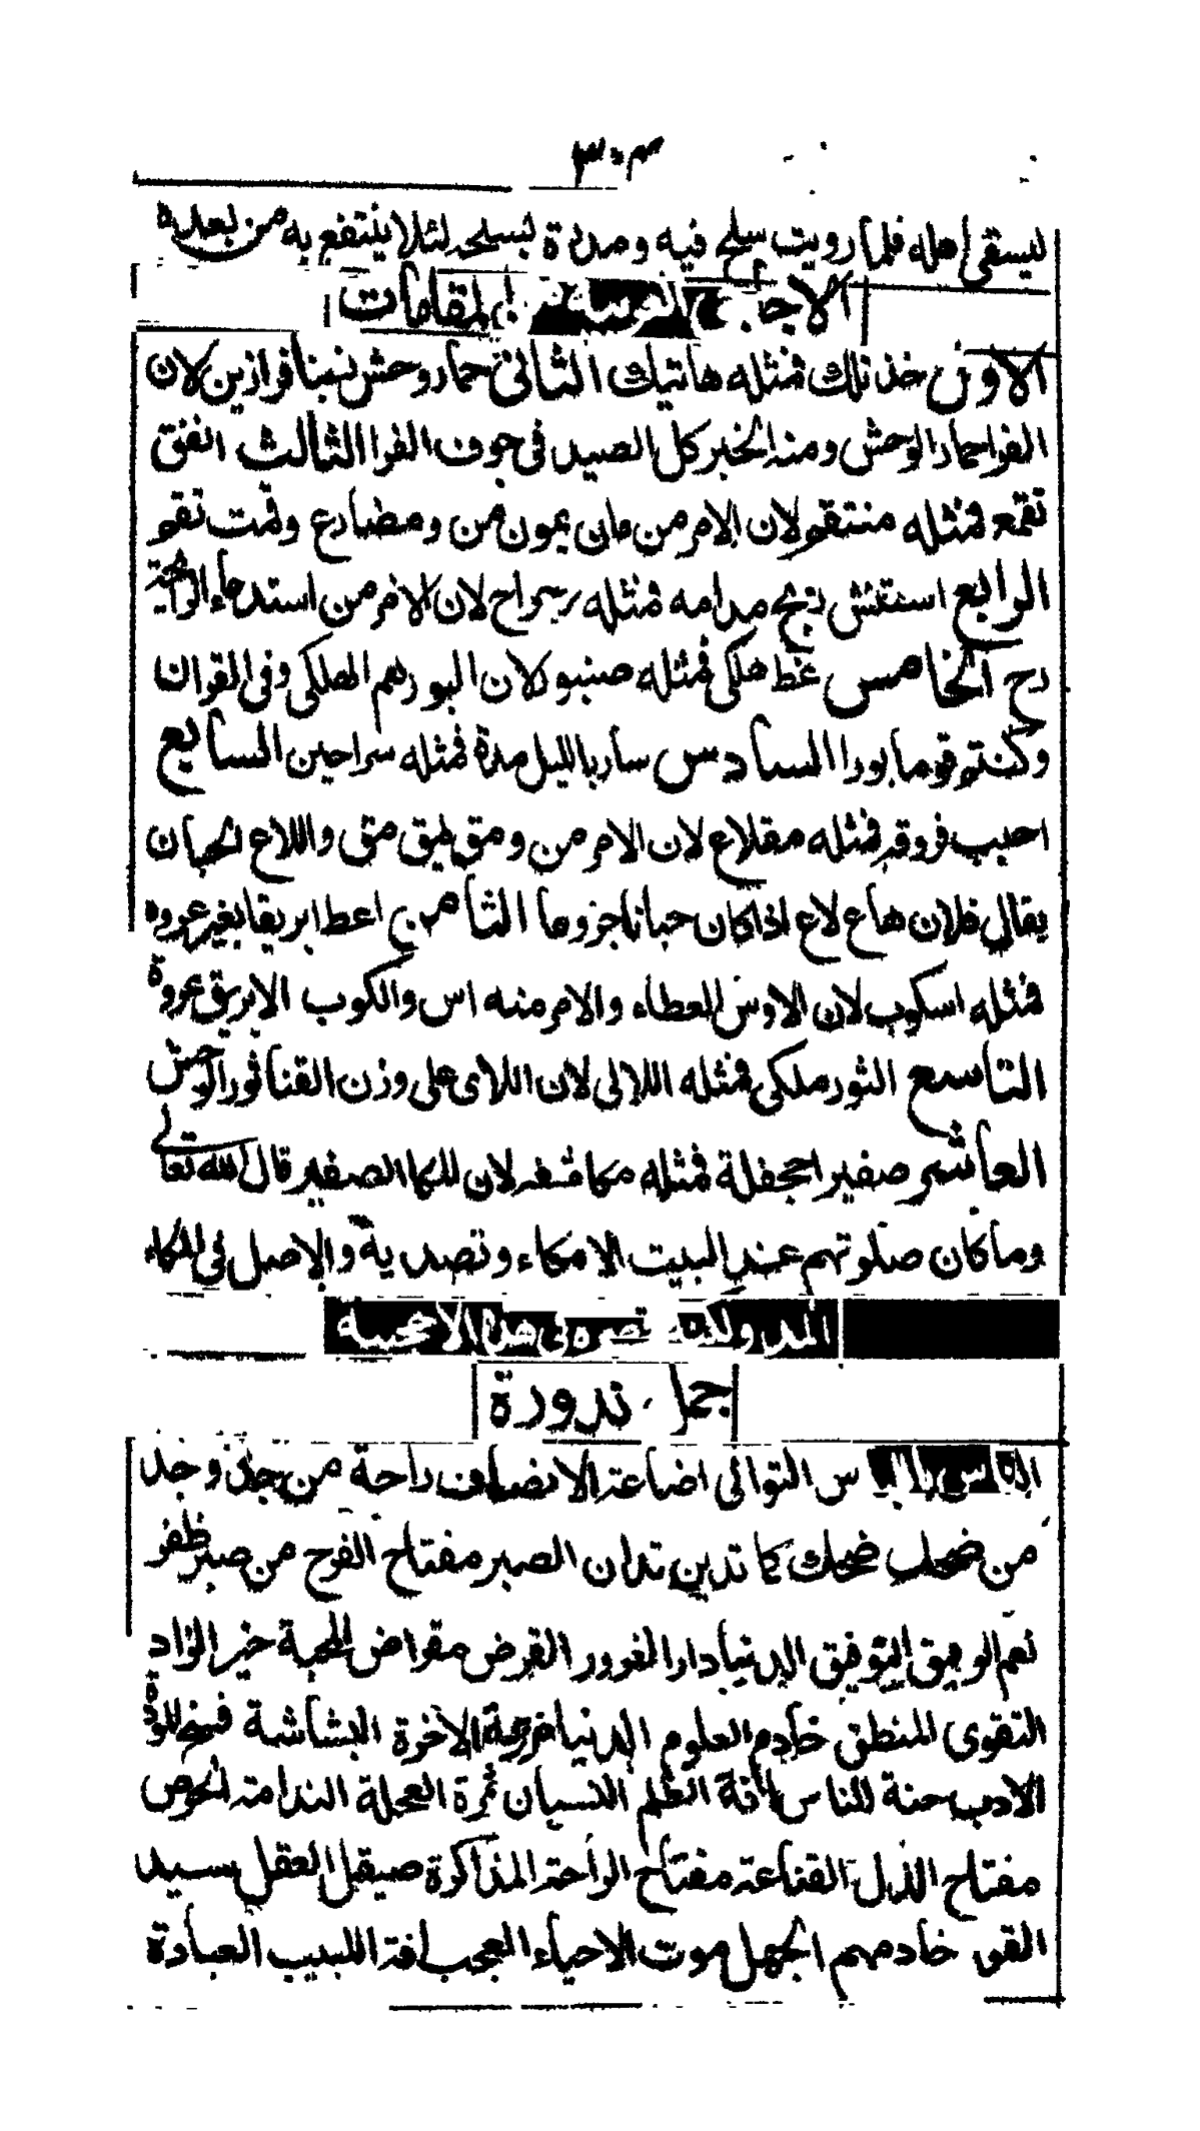 ٣٠٣
ليسقى اهله فلما رويت سلح فيه ومدرة لبسلحه لئلا ينتفع به من بعده
الاحاجى المقامات
الاول خذ تلك فمثله هاتيك الثانى حمار وحش زينا فرازين لان
الفرا حمار الوحش ومنه الخبر كل الصيد فى جوف الفرا الثالث انفق
تقمع فمثله منتقم لان الامر من مان يمون من ومضارع وقمت تقم
الرابع استنش ريح مدامه فمثله رحراح لان الامر من استدعاء الرائحة
رح الخامس غط هلكى فمثله صنبور لان البور هم الهلكى وفى القران
وكنتم قوما بورا السادس سار بالليل مدة فمثله سراحين السابع
احبب فروقه فمثله مقلاع لان الامر من ومق يمق مق واللاع الجبان
يقال فلان هاع لاع اذا كان جبانا جزوعا الثامن اعط ابريقا بغير عروه
فمثله اسكوب لان الاوس العطاء والامر منه اس والكوب الابريق عروة
التاسع الثور ملكى فمثله اللالى لان اللاى على وزن القنا ثور الوحش
العاشر صفير احجفلة فمثله مكاشفه لان للمكا الصفير قال الله تعالى
وما كان صلوتهم عند البيت الا مكاء وتصدية والاصل فى المكاء
المد ولكنه قصره فى هذه الاحجية
جمل ندورة
س التوانى اضاعة الانصاف راحة من جد وجد
من ضحك ضحك كما تدين تدان الصبر مفتاح الفرج من صبر ظفر
نعم الرفيق التوفيق الدنيا دار الغرور القرض مقراض المحبة خير الزاد
التقوى المنطق خادم العلوم الدنيا مزرعة الاخرة البشاشة فخ المودة
الادب جنة للناس افة العلم النسيان ثمرة العجلة الندامة الحرص
مفتاح الذل القناعة مفتاح الراحة المذاكرة صيقل العقل سيد
القوم خادمهم الجهل موت الاحياء العجب افة اللبيب العبادة